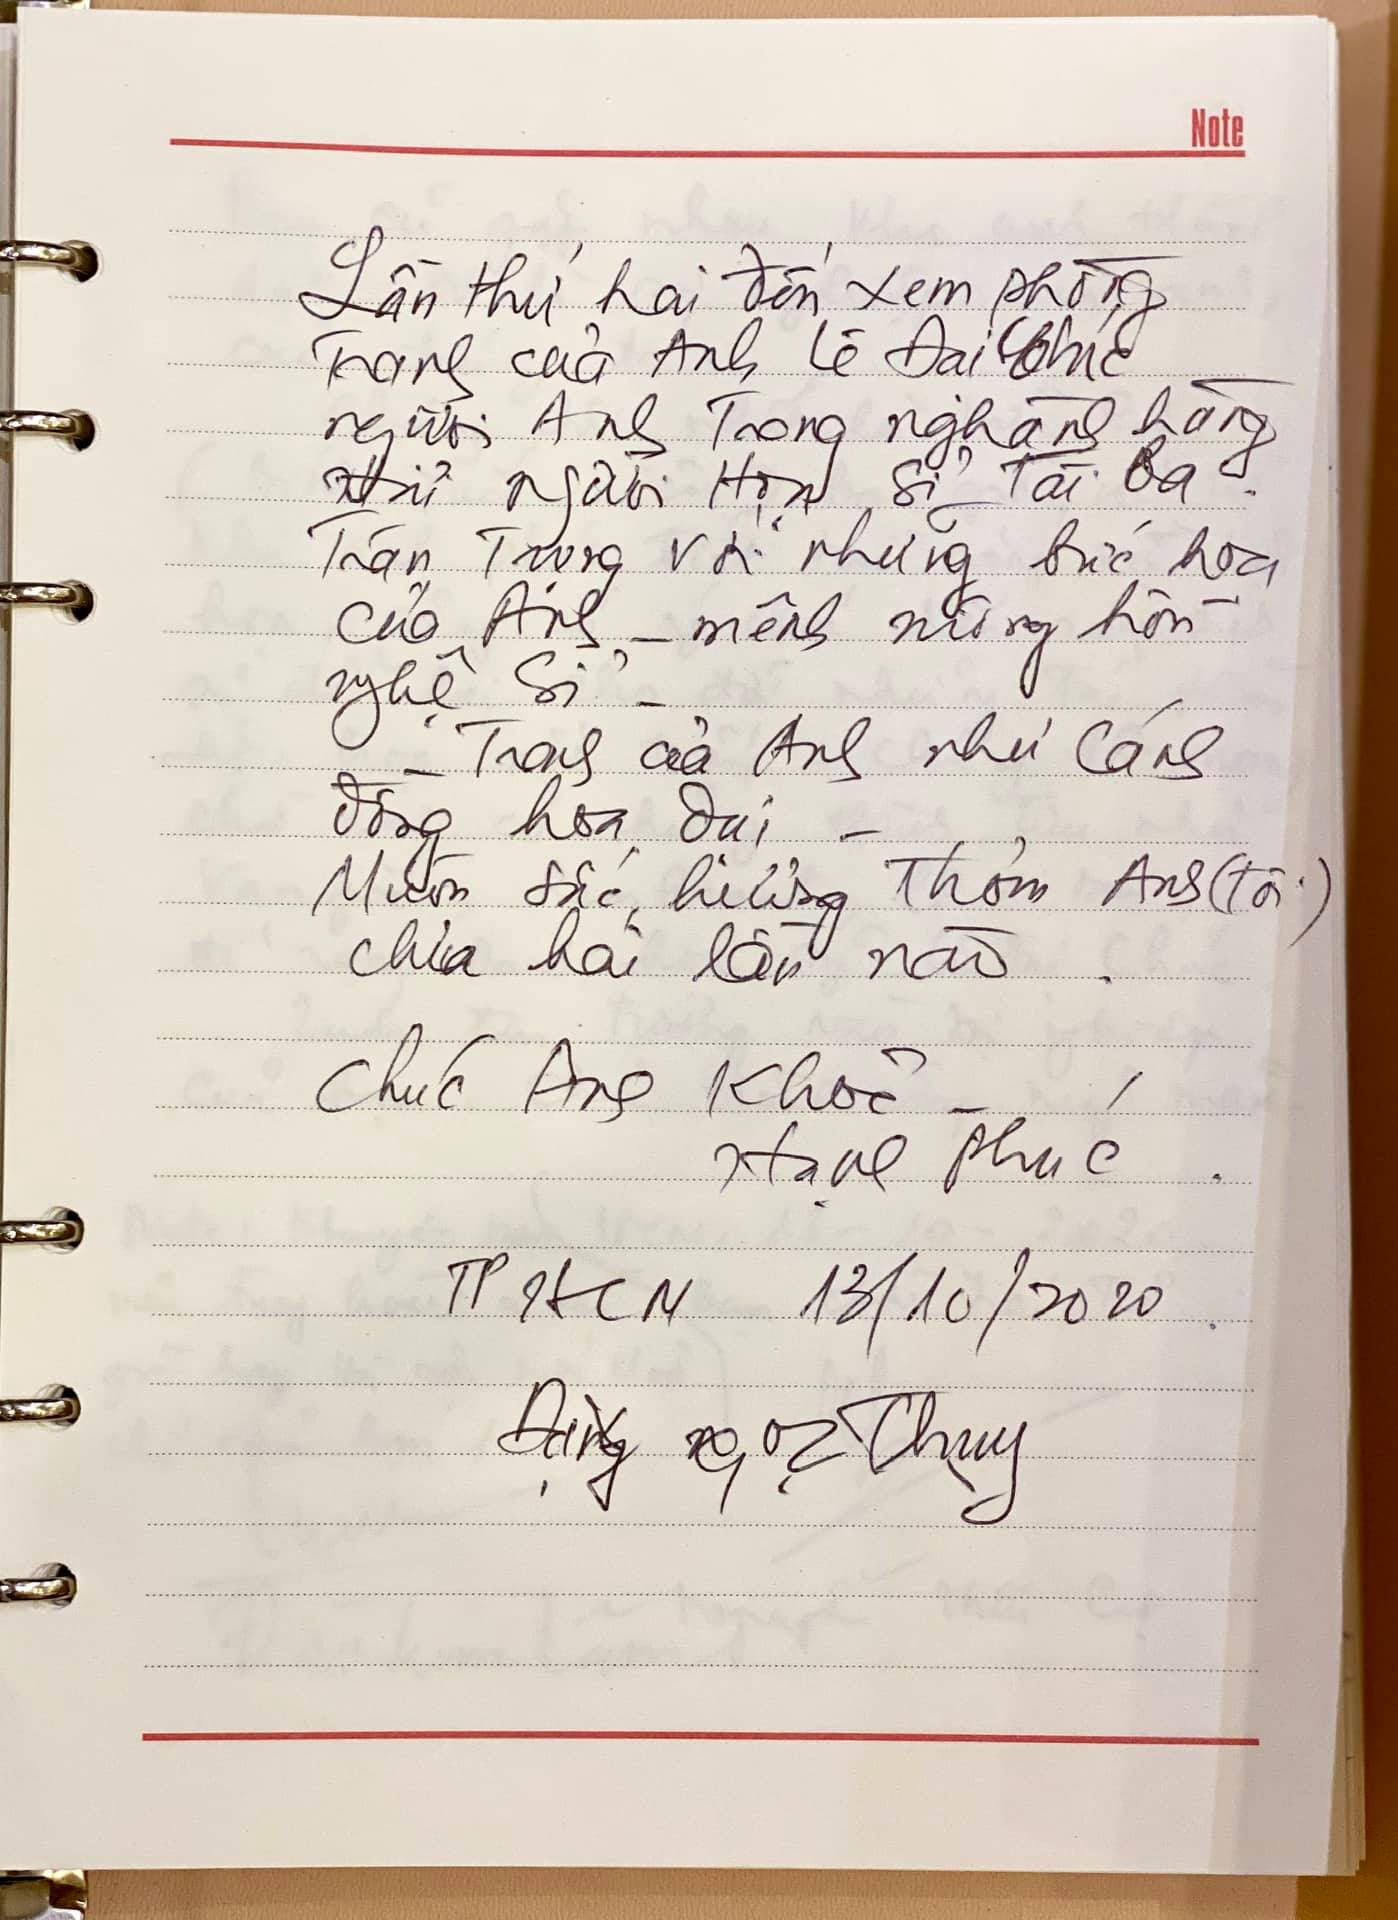 Note
Lần thứ hai đến xem phòng
Tranh của Anh Lê Đại Chúc
người Anh Trong nghành hàng
Hải người Họa sỉ Tài Ba.
Trân Trọng với những bức họa
của Anh - mênh mông hồn
nghệ sỉ -
- Tranh của Anh như Cánh
đồng hoa, Dại -
Muôn sắc, hương Thơm Anh (tôi)
chưa hái lần nào.
Chúc Anh Khoẻ -
Hạnh phúc.
TP HCM 13/10/2020.
Đặng Ngọc Thụy